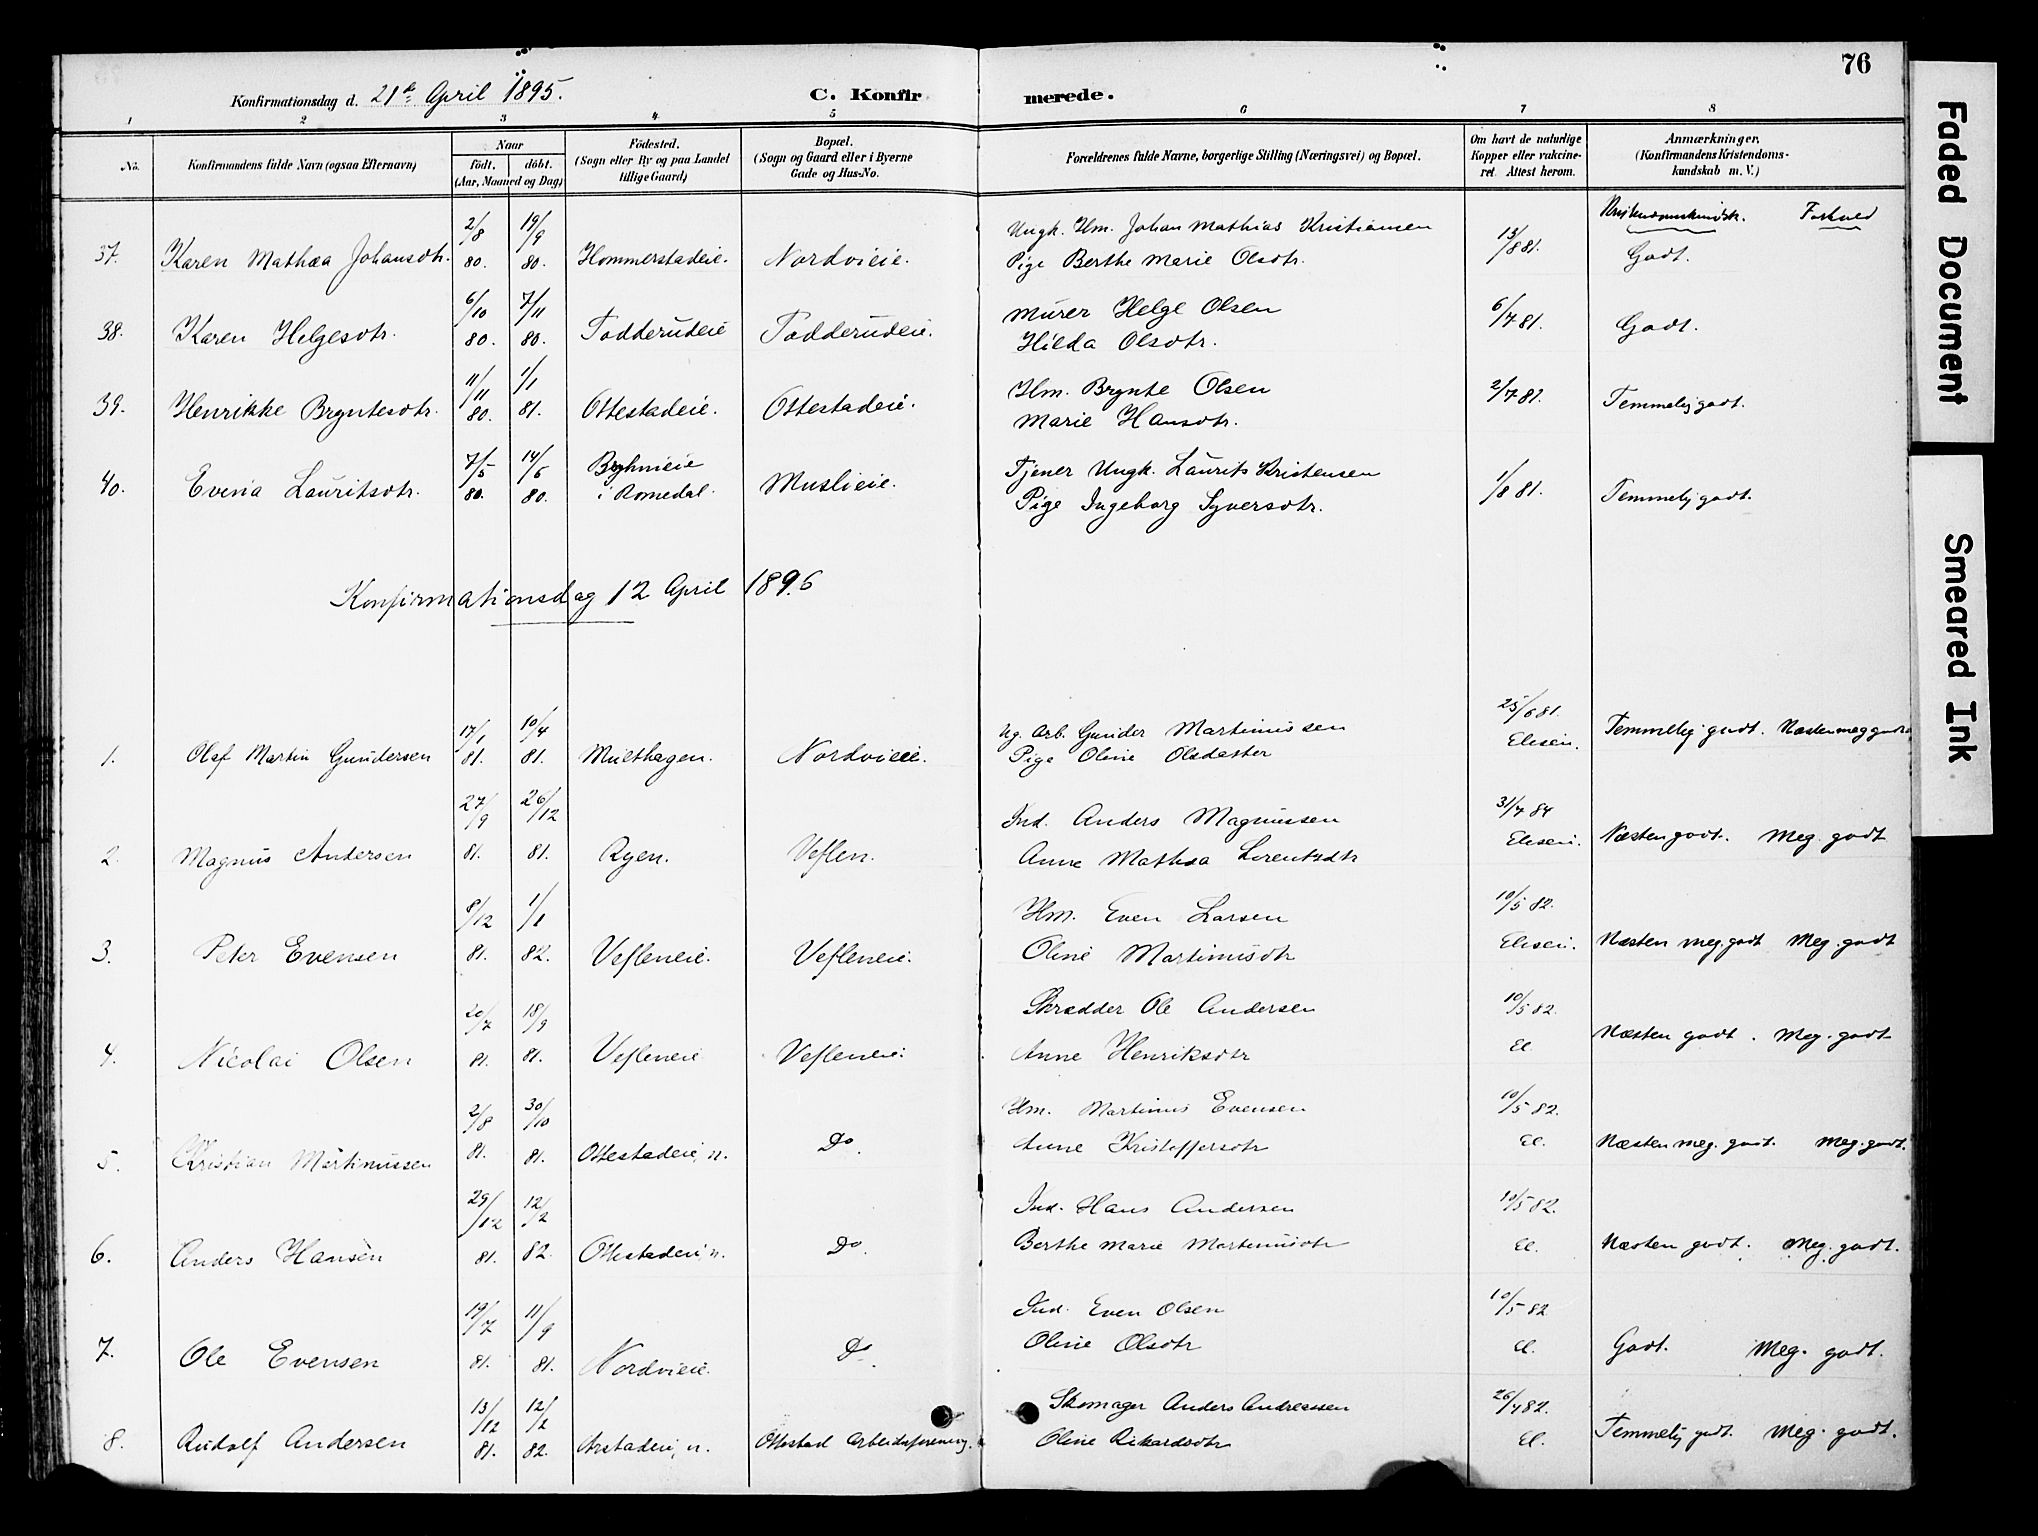 76
Konfirmationsdag d. 21de April 1895.
C. Konfirmerede.
1 2 3 4 5 6 7 8
No.
Konfirmandens fulde Navn (ogsaa Efternavn)
Naar
födt. döbt.
(Aar, Maaned og Dag)
Födested.
(Sogn eller By og paa Landet
tillige Gaard)
Bopæl.
(Sogn og Gaard eller i Byerne
Gade og Hus-No.
Forældrenes fulde Navne, borgerlige Stilling (Næringsvei) og Bopæl.
Om havt de naturlige
Kopper eller vakcine-
ret. Attest herom.
Anmærkninger,
(Konfirmandens Kristendoms-
kundskab m. V.)
Kristendomskundsk. Forhold
37. Karen Mathea Johansdtr. 2/8 80. 19/9 80. Hommerstadeie. Nordvieie. Ungk. Hm. Johan Mathias Kristiansen 13/8 81. Godt.
Pige Berthe Marie Olsdtr.
38. Karen Helgesdtr. 6/10 80. 7/11 80. Todderudeie Todderudeie. Murer Helge Olsen 6/7 81. Godt.
Hilda Olsdtr.
39. Henrikke Bryntesdtr. 11/11 80. 1/1 81. Ottestadeie. Ottestadeie. Hm. Brynte Olsen 2/7 81. Temmelig godt.
Marie Hansdtr.
40. Evena Lauritsdtr. 7/5 80. 14/6 80. i Romedal. Muslieie. Tjener Ungk. Laurits Kristensen 1/8 81. Temmelig godt.
Pige Ingeborg Syversdtr.
Konfirmationsdag 12 April 1896
1. Olaf Martin Gundersen 17/1 81. 10/4 81. Multhagen. Nordvieie. Ug. Arb. Gunder Martinussen 25/6 81. Elisen. Temmelig godt. Næsten meg godt
Pige Oline Olsdatter
2. Magnus Andersen 27/9 81. 26/12 81. Ryen. Veflen. Ind. Anders Magnussen 31/7 84 Elisen. Næsten godt. Meg. godt
Anne Mathea Lorentsdtr
3. Peter Evensen 8/12 81. 1/1 82. Vefleneie. Vefleneie. Hm. Even Larsen 10/5 82. Elisen. Næsten meg. godt Meg. godt
Oline Martinusdtr
4. Nicolai Olsen 20/7 81. 18/9 81. Vefleneie Vefleneie. Skrædder Ole Andersen 10/5 82. El. Næsten godt. Meg. godt
Anne Henriksdtr
5. Kristian Martinussen 2/8 81. 30/10 81. Ottestadeie, n. Do. Hm. Martinus Evensen 10/5 82. El. Næsten meg. godt. Meg. godt.
Anne Kristoffersdtr
6. Anders Hansen 29/12 81. 12/2 82. Ottestadeie, n. Do. Ind. Hans Andersen 10/5 82. El. Næsten godt. Meg. godt.
Berthe Marie Martinusdtr
7. Ole Evensen 19/7 81. 11/9 81. Nordvieie. Do. Ind. Even Olsen 10/5 82 El. Godt. Meg. godt.
Oline Olsdtr
8. Rudolf Andersen 13/12 81. 12/2 82. Arstadeie, n. Ottestad Arbeidsforening. Skomager Anders Andreassen 26/7 82. El. Temmelig godt. Meg. godt.
Oline Rikardsdtr
Faded Document
Smeared Ink